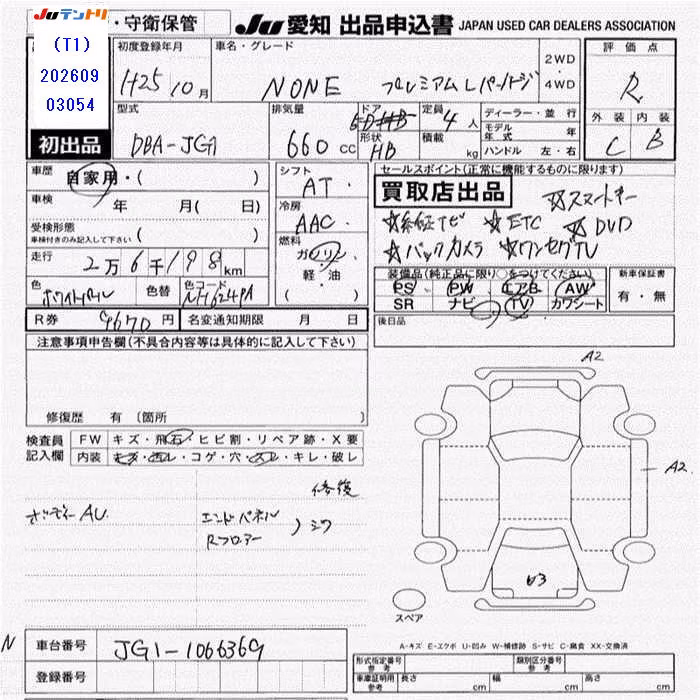 Juテントリ
(T1)
202609
03054
・守衛保管
Ju 愛知 出品申込書 JAPAN USED CAR DEALERS ASSOCIATION
初度登録年月
H25 10月
車名・グレード
NONE プレミアムLパッケージ
2WD
・
4WD
評価点
R
外装 内装
C B
初出品
型式
DBA-JG1
排気量
660 cc
ドア
形状
HB
定員 4人
積載 kg
ディーラー・並行
モデル年式 年
ハンドル 左・右
車歴 自家用・( )
車検 年 月( 日)
受検形態
車検付きのみ記入して下さい ( )
走行 2万6千198km
色 ホワイトパール 色替 色コード NH624PA
シフト
AT
冷房
AAC
燃料
ガソリン
軽・油
( )
R券 9670円 名変通知期限 月 日
セールスポイント(正常に機能するものに限ります)
買取店出品
☆スマートキー
☆純正ナビ ☆ETC ☆DVD
☆バックカメラ ☆ワンセグTV
装備品(純正品に限り○をつけてください)
PS PW エアB AW
SR ナビ TV カワシート
新車保証書
有・無
後日品
注意事項申告欄(不具合内容等は具体的に記入して下さい)
修復歴 有 〔箇所
検査員記入欄
FW キズ・飛石・ヒビ割・リペア跡・X要
内装 キズ・汚レ・コゲ・穴・スレ・キレ・破レ
修復
ボディーAU
エンドパネル
Rフロアー
)シワ
A2
A2
U3
スペア
A-キズ E-エクボ U-凹み W-補修跡 S-サビ C-腐食 XX-交換済
N 車台番号 JG1-1066369
登録番号
形式指定番号 参考 類別区分番号 参考
車庫証明用 参考 長さ cm 幅 cm 高さ cm